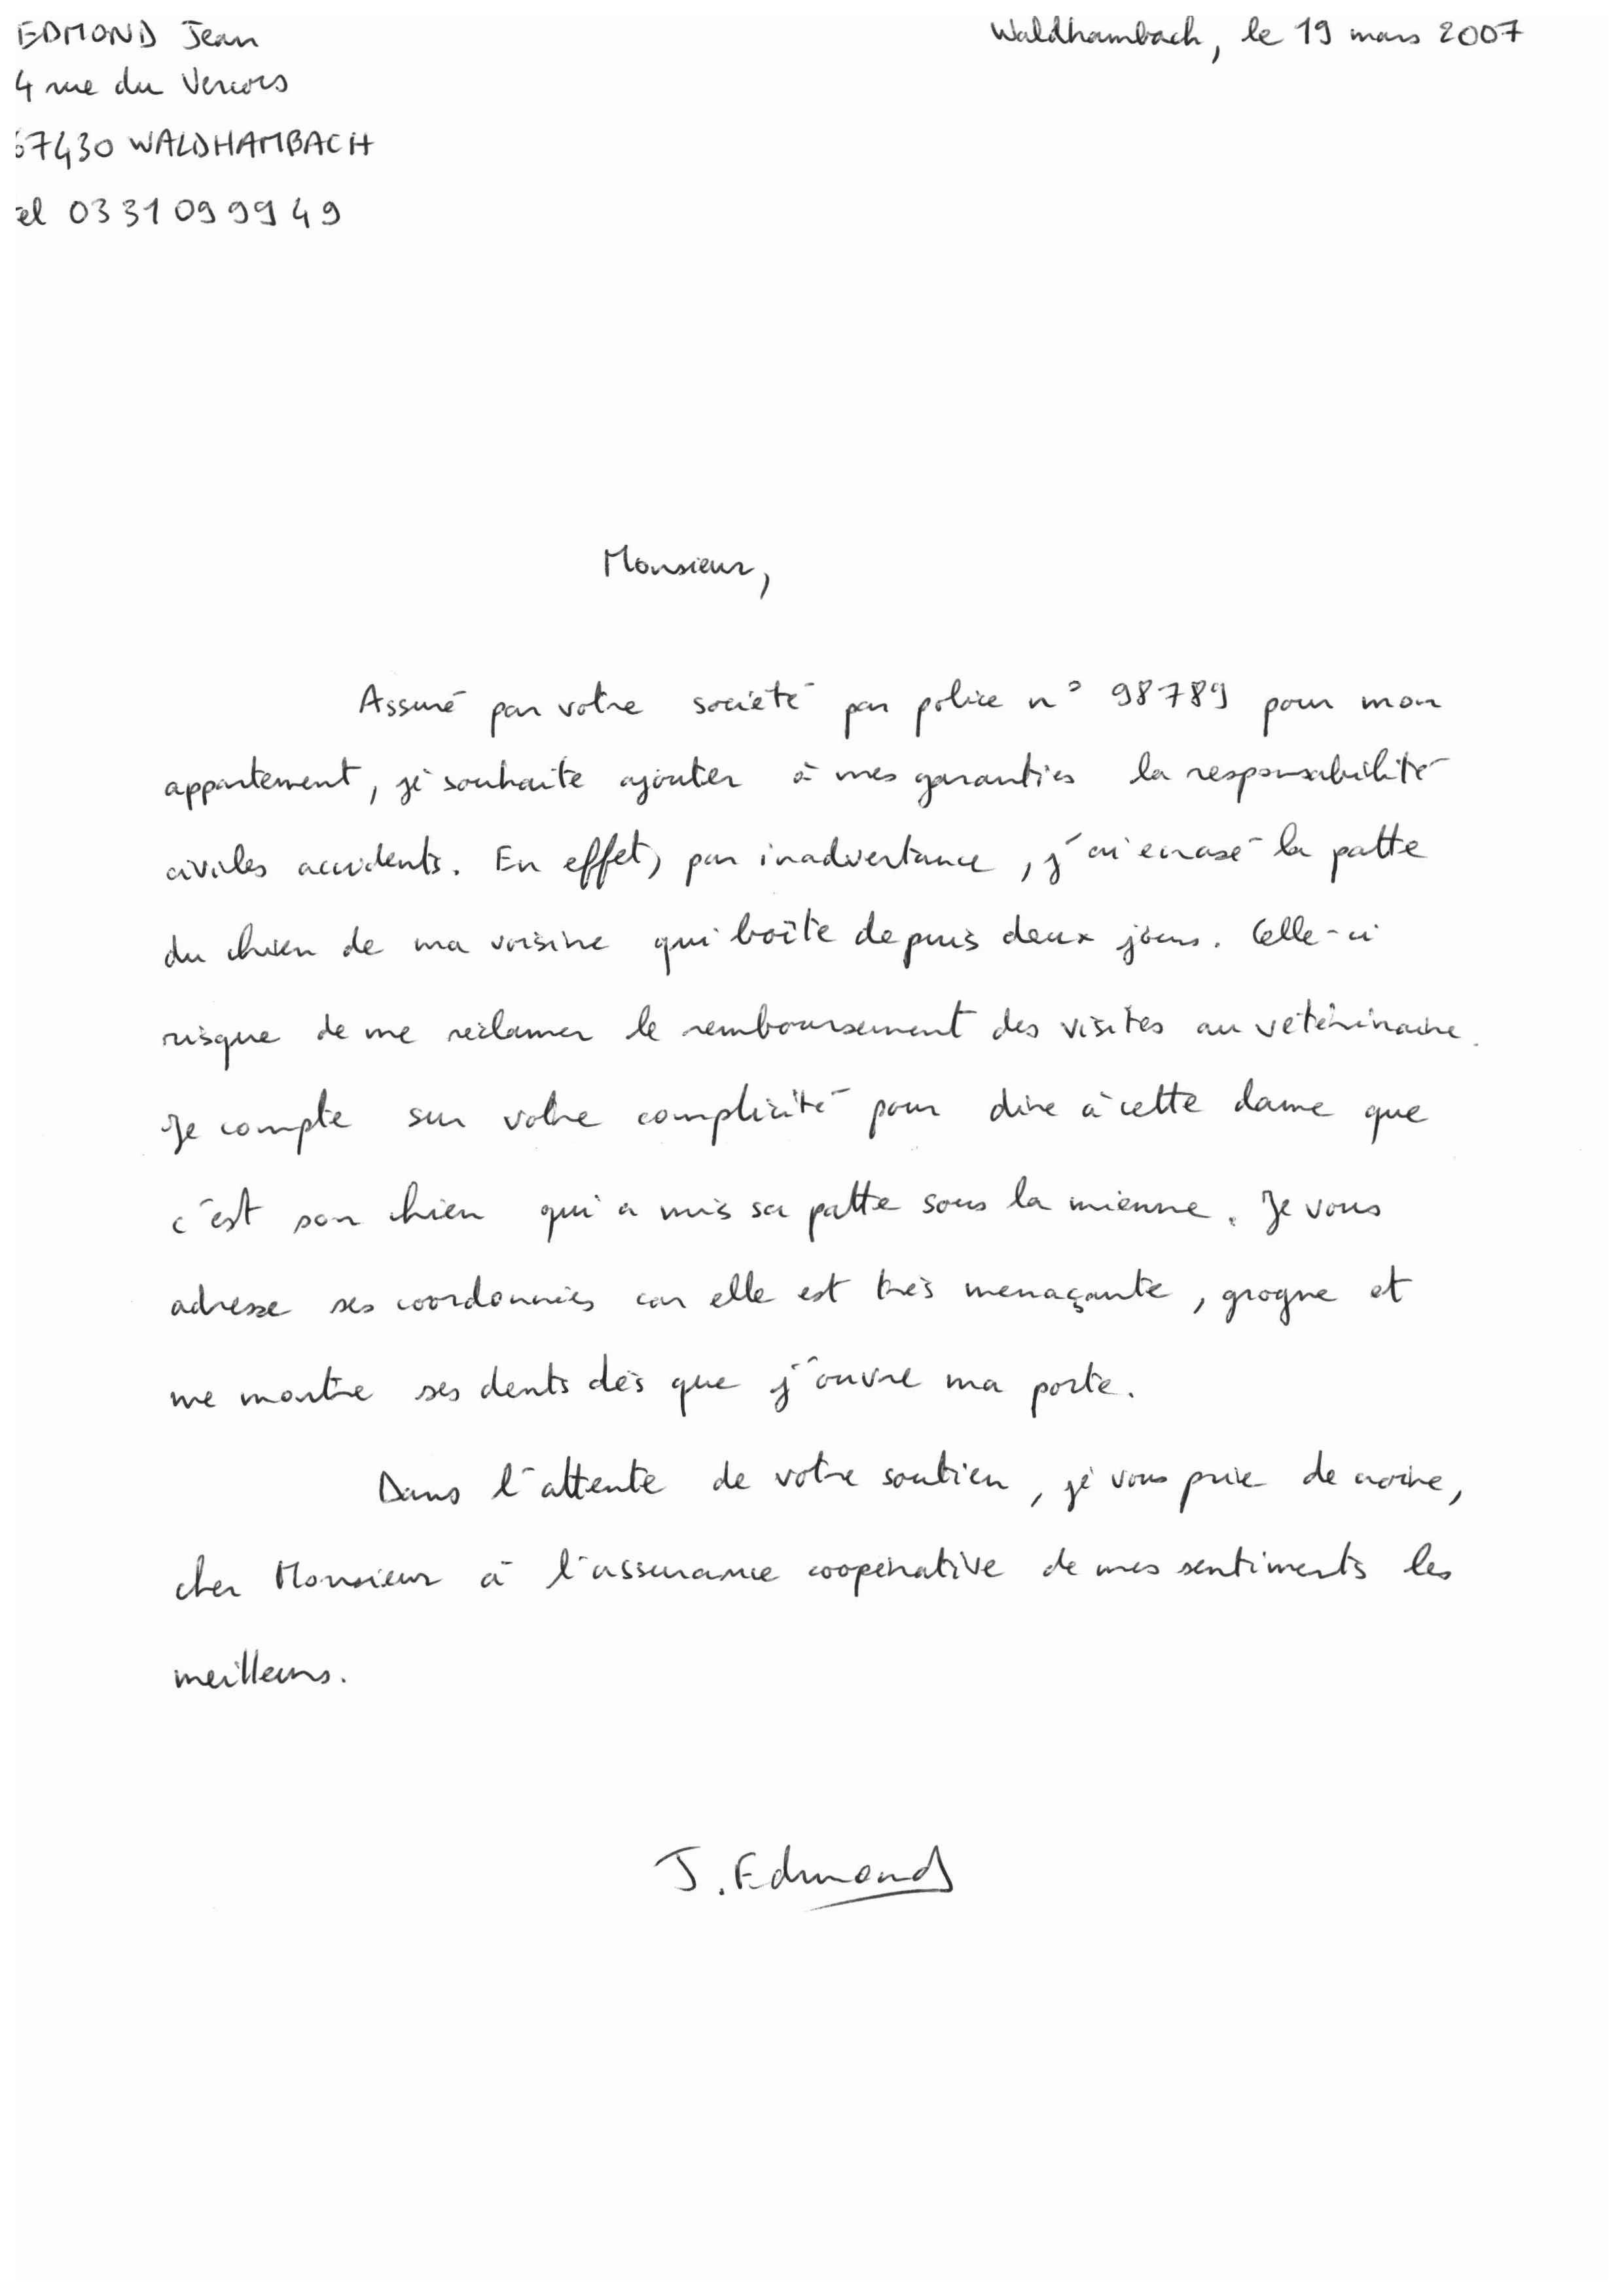 EDMOND Jean
Waldhambach, le 19 mars 2007
4 rue du Vercors
67430 WALDHAMBACH
el 03 31 09 99 49
Monsieur,
Assuré par votre société par police n° 98789 pour mon
appartement, je souhaite ajouter à mes garanties la responsabilité
civiles accidents. En effet, par inadvertance, j'ai écrasé la patte
du chien de ma voisine qui boîte depuis deux jours. Celle-ci
risque de me réclamer le remboursement des visites au vétérinaire.
Je compte sur votre complicité pour dire à cette dame que
c'est son chien qui a mis sa patte sous la mienne. Je vous
adresse ses coordonnées car elle est très menaçante, grogne et
me montre ses dents dès que j'ouvre ma porte.
Dans l'attente de votre soutien, je vous prie de croire,
cher Monsieur à l'assurance coopérative de mes sentiments les
meilleurs.
J. Edmond